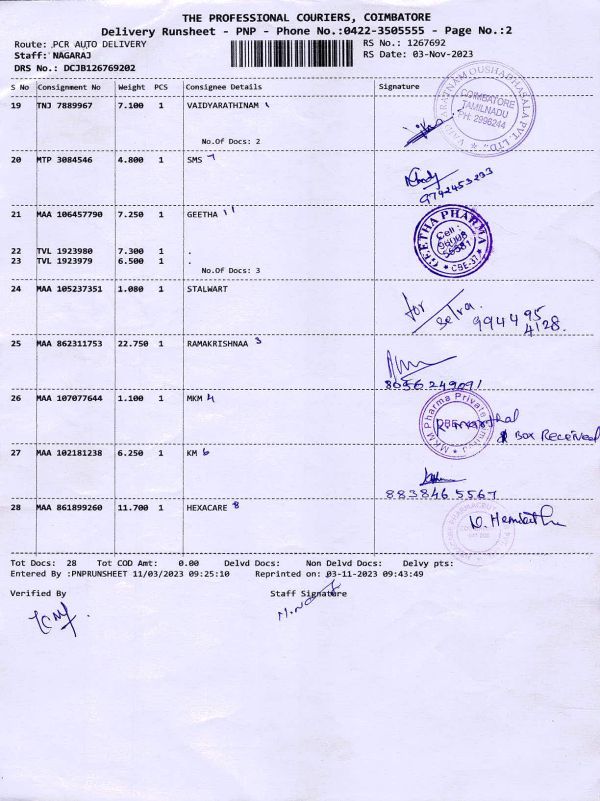 THE PROFESSIONAL COURIERS, COIMBATORE
Delivery Runsheet - PNP - Phone No.:0422-3505555 - Page No.:2
Route: PCR AUTO DELIVERY RS No.: 1267692
Staff: NAGARAJ RS Date: 03-Nov-2023
DRS No.: DCJB126769202
S No Consignment No Weight PCS Consignee Details Signature
19 TNJ 7889967 7.100 1 VAIDYARATHINAM
COIMBATORE
TAMILNADU
PH: 2996244
No.Of Docs: 2
20 MTP 3084546 4.800 1 SMS 7
9742453233
21 MAA 106457790 7.250 1 GEETHA 11
GEETHA PHARMA
Cell:
CBE-37
22 TVL 1923980 7.300 1 .
23 TVL 1923979 6.500 1 .
No.Of Docs: 3
24 MAA 105237351 1.080 1 STALWART
for
994495
4128.
25 MAA 862311753 22.750 1 RAMAKRISHNAA 3
8056249091
26 MAA 107077644 1.100 1 MKM 4
MKM Pharma Private Limited
BOX Received
27 MAA 102181238 6.250 1 KM 6
8838465567
28 MAA 861899260 11.700 1 HEXACARE 8
Tot Docs: 28 Tot COD Amt: 0.00 Delvd Docs: Non Delvd Docs: Delvy pts:
Entered By :PNPRUNSHEET 11/03/2023 09:25:10 Reprinted on: 03-11-2023 09:43:49
Verified By Staff Signature